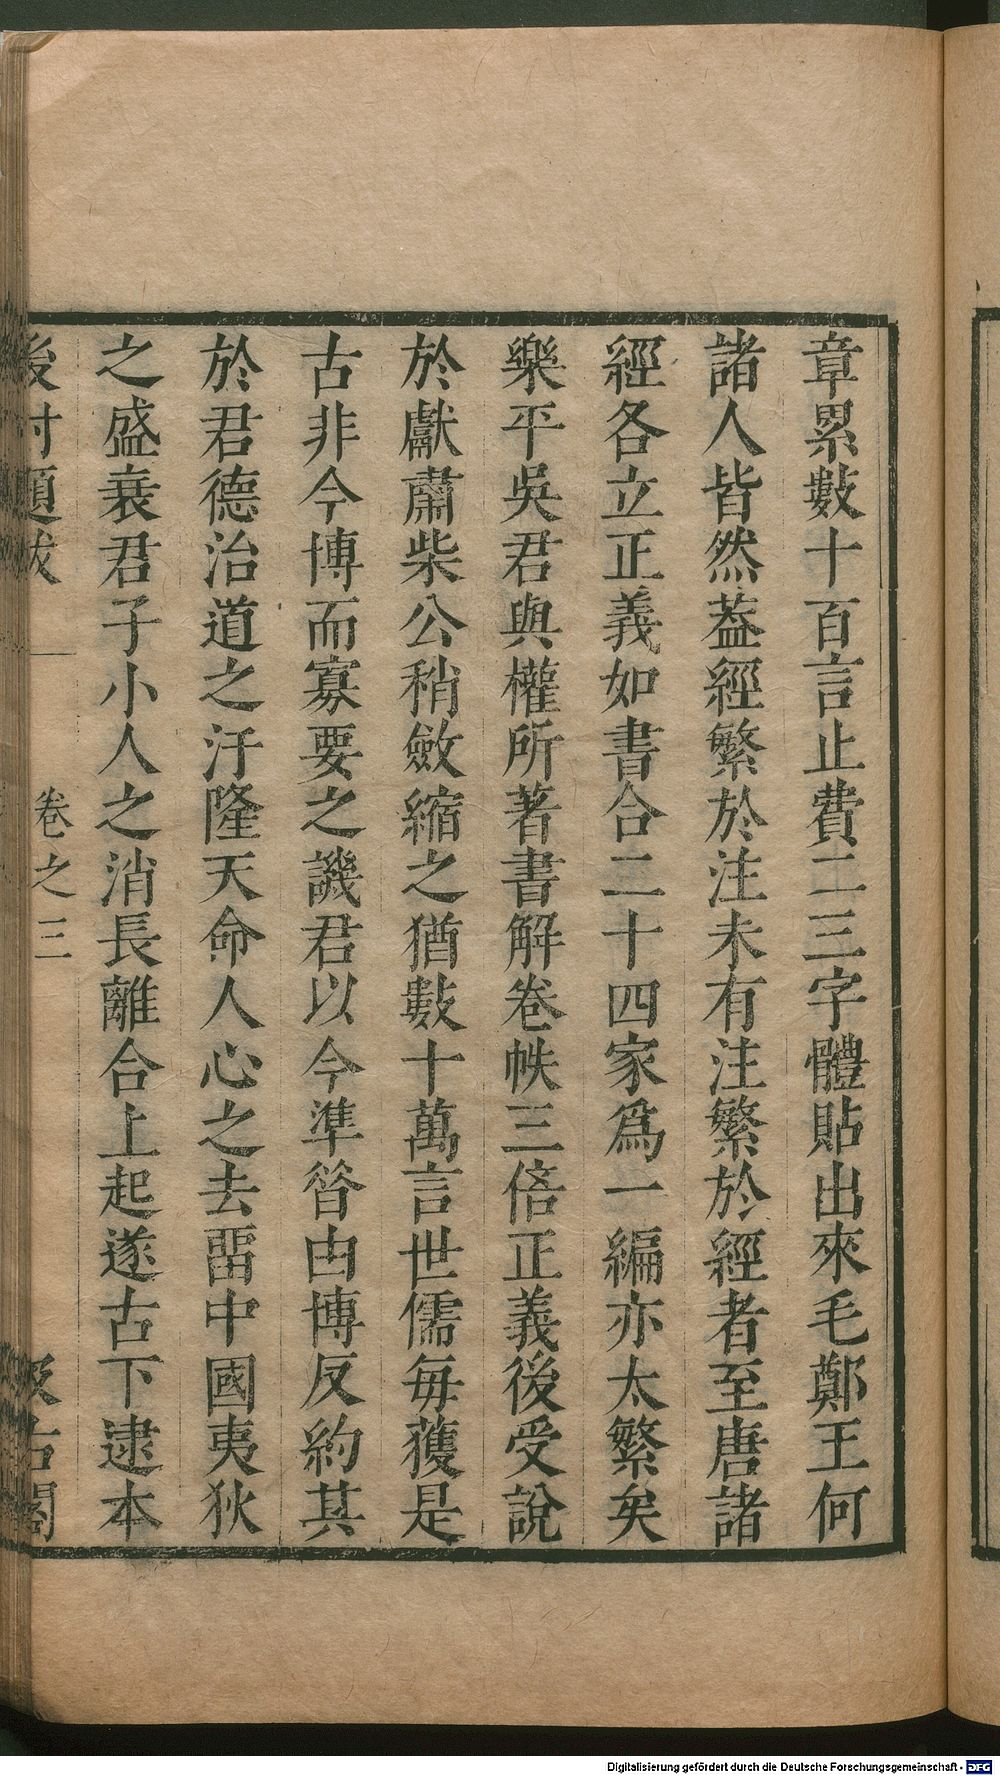 章累數十百言止費二三字體貼出來毛鄭王何
諸人皆然葢經繁於注未有注繁於經者至唐諸
經各立正義如書合二十四家爲一編亦太繁矣
樂平吳君與權所著書解卷帙三倍正義後受說
於獻肅柴公稍斂縮之猶數十萬言世儒每獲是
古非今博而寡要之譏君以今準昝由博反約其
於君德治道之汙隆天命人心之去畱中國夷狄
之盛衰君子小人之消長離合上起遂古下逮本
後村題跋 卷之三 汲古閣
Digitalisierung gefördert durch die Deutsche Forschungsgemeinschaft - DFG